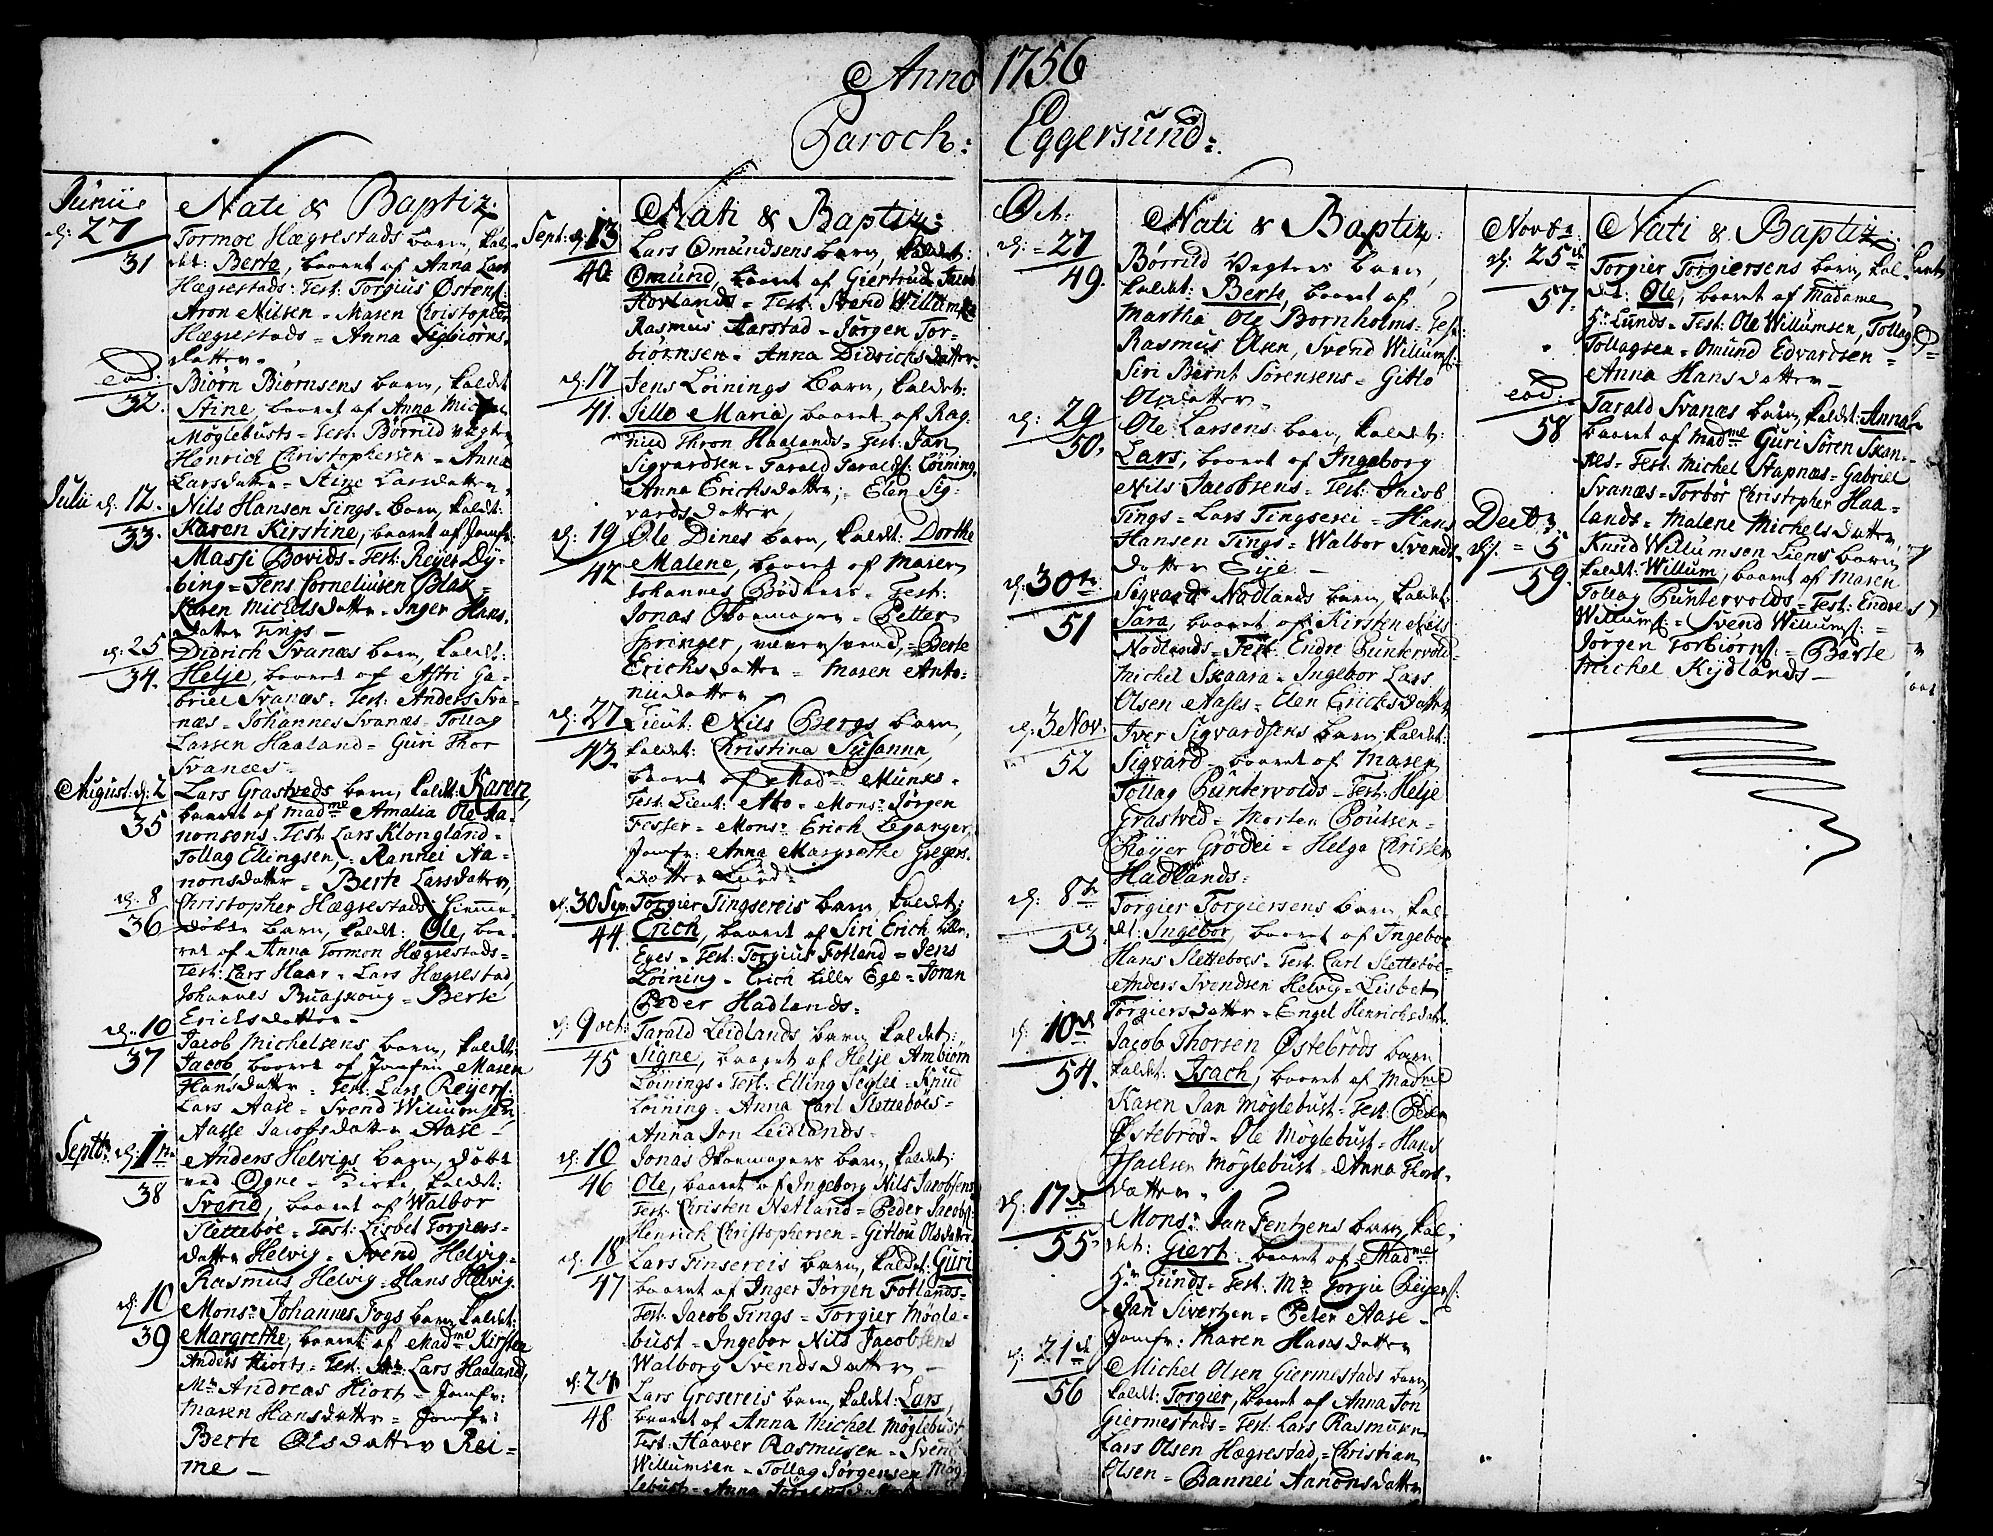 Anno 1756
Paroch: Eggersund:
Junii
d: 27
31
Nati & Baptiz:
Tormoe Hægrestads barn, kal-
det: Berte, baaret af Anna Lars
Hægrestads: Test: Torgius Østens:
Aron Nilsen = Maren Christopher
Hægrestads = Anna Sigbiörns-
datter.
eod:
32.
Biørn Biørnsens barn, kaldet
Stine, baaret af Anna Michel
Möglebusts = Test: Børrild Vegter
Henrich Christophersen = Anna
Larsdatter = Stine Larsdatter.
Julii d: 12.
33.
Nils Hansen Tings = barn, kaldet:
Karen Kirstine, baaret af Jomfr:
Massi Bovids = Test: Reyer Dy-
bing = Jens Corneliusen Blax =
Karen Michelsdatter = Inger Hans-
datter Tings —
d: 25
34.
Didrich Svanæs barn, kaldt:
Helje, baaret af Astri Ga-
briel Svanæs = Test: Anders Sva-
næs = Johannes Svanæs = Tollag
Larsen Haaland = Guri Thor
Svanæs =
August: d: 2
35
Lars Grastveds barn, kaldt: Karen,
baaret af Madme Amalia Ole Aa-
nonsons Test: Lars Klongland =
Tollag Ellingsen, = Rannei Aa-
nonsdatter = Berte Larsdatter,
d: 8
36
Christopher Hægrestads hiemme-
døbte barn, kaldt: Ole, baa-
ret af Anna Tormon Hægrestads =
Test: Lars Haar = Lars Hægrestad,
Johannes Buaskoug = Berte
Erichsdatter =
d: 10
37
Jacob Michelsens barn, kaldet:
Jacob, baaret af Jomfru Maren
Hansdatter = Test: Lars Reyers:
Lars Aase = Svend Willumsen,
Aasse Jacobsdatter Aase —
Septbr d: 1me
38
Anders Helvigs barn, døbt
ved Ogne = Kirke, kaldet:
Svend, baaret af Walbor
Sletteböe = Test: Lisbet Torgiers-
datter Helvig = Svend Helvig =
Rasmus Helvig = Hans Helvig.
d: 10
39
Monsr Johannes Fogs barn kaldet:
Margrethe, baaret af Madme Kirsten
Anders Hiorts = Test: Mr Lars Haaland,
Mr Andreas Hiort = Jomfr:
Maren Hansdatter = Jomfr:
Berte Olsdatter Rei-
me —
Sept: d: 13
40
Nati & Baptiz:
Lars Omundsens barn, kaldet:
Omund, baaret af Giertrud Jacob
Hovlands = Test: Svend Willumsen
Rasmus Aarstad = Jörgen Tor-
biørnsen = Anna Didrichsdatter
d: 17
41.
Jens Löinings barn, kaldet:
Sille Maria, baaret af Rag-
nild Thron Haalands = Test: Jan
Sigvardsen = Tarald Taralds: Löining,
Anna Erichsdatter; = Elen Sig-
vardsdatter,
d: 19
42
Ole Dines barn, kaldet: Dorthe
Malene, baaret af Maren
Johannes Bödkers = Test:
Jonas Skoemager = Petter
Springer, murersvend, = Berte
Erichsdatter = Maren Anto-
niidatter
d: 27
43.
Lieut: Nils Bergs barn,
kaldet: Christina Susanna,
baaret af Madme Munks =
Test: Lieut: Atto = Monsr Jörgen
Fesser = Monsr Erich Leganger,
Jomfr: Anna Margrethe Gregers-
datter Lund =
d: 30 Sep.
44
Torgier Tingsereis barn, kaldet:
Erich, baaret af Siri Erich lille-
Eges = Test: Torgius Fotland = Jens
Löining = Erich Lille Ege = Joran
Peder Hadlands =
d: 9 oct:
45
Tarald Leidlands barn, kaldet:
Signe, baaret af Helje Ambiorn
Löinings = Test: Elling Seglei = Knud
Löining = Anna Carl Sletteböes =
Anna Jon Leidlands =
d: 10
46
Jonas Skoemagers barn, kaldet:
Ole, baaret af Ingeborg Nils Jacobsens
Test: Christen Netland = Peder Jacobs:
Henrich Christophersen = Gitlou Olsdatter
d: 18
47
Lars Tinsereis barn, kaldet: Guri
baaret af Inger Jörgen Fotlands =
Test: Jacob Tings = Torgier Mögle-
bust = Ingebor Nils Jacobsens
Walborg Svendsdatter —
d: 24
48
Lars Grosereis barn, kaldet: Lars,
baaret af Anna Michel Möglebust
Test: Haaver Rasmusen = Svend
Willumsen = Tollag Jørgensen Mög-
lebust = Anna Jörgensdatter
Oct:
d: = 27
49.
Nati & Baptiz:
Børrild Vegters barn,
kaldet: Berte, baaret af
Martha Ole Bornholms = Test:
Rasmus Olsen, Svend Willums:
Siri Bernt Sörensens = Gitlo
Olsdatter =
d: 29
50,
Ole Larsens barn, kaldet:
Lars, baaret af Ingeborg
Nils Jacobsens = Test: Jacob
Tings = Lars Tingserei = Hans
Hansen Tings = Walbor Svends-
datter Eije —
d: 30te
51
Sigvard Nodlands barn, kaldet:
Sara, baaret af Kirsten Nils
Nodlands = Test: Endre Puntervold =
Michel Skaara = Ingebor Lars
Olsen Aases = Elen Erichsdatter
d: 3 Nov:
52
Iver Sigvardsens barn, kaldet:
Sigvard = baaret af Maren
Tollag Puntervolds = Test: Helje
Grastved = Morten Poulsen =
Reyer Grödei = Helga Christen
Hadlands =
d: 8de
53.
Torgier Torgiersens barn, kal-
det: Ingebor, baaret af Ingebor
Hans Sletteboes = Test: Carl Sletteböe =
Anders Svendsen Helvig = Lisbet
Torgiersdatter = Engel Henrichsdatr
d: 10de
54.
Jacob Thorsen Østebröds barn
kaldet: Isach, baaret af Madme
Karen Jan Möglebust = Test: Peder
Østebröd = Ole Möglebust = Hans
Isachsen Möglebust = Anna Thors-
datter.
d: 17de
55.
Monsr Jan Fentzens barn, kal-
det: Giert baaret af Madme
Hr Lunds = Test: Mr Torgu Reyers:
Jan Sivertzen = Peter Aase =
Jomfr: Maren Hansdatter
d: 21de
56
Michel Olsen Giermestads barn
kaldet: Torgier, baaret af Anna Jon
Giermestads = Test: Lars Rasmusen
Lars Olsen Hægrestad, = Christian
Olsen = Rannei Aanonsdatter
Novbr
d: 25de
57.
Nati & Baptiz:
Torgier Torgiersens barn, kal-
det: Ole, baaret af Madame
Hr Lunds = Test: Ole Willumsen, Tollag
Tollagsen = Omund Edvardsen =
Anna Hansdatter —
eod:
58
Tarald Svanæs barn, kaldet: Anna
baaret af Madme Guri Sören Skan-
kes = Test: Michel Stapnæs = Gabriel
Svanæs = Torbor Christopher Haa-
lands = Malene Michelsdatter,
Decbr
d: = 5
59.
Knud Willumsen Liens barn,
kaldet: Willum, baaret af Maren
Tollag Puntervolds = Test: Endre
Willums: = Svend Willums: =
Jörgen Torbiörns: = Berte
Michel Kydlands —